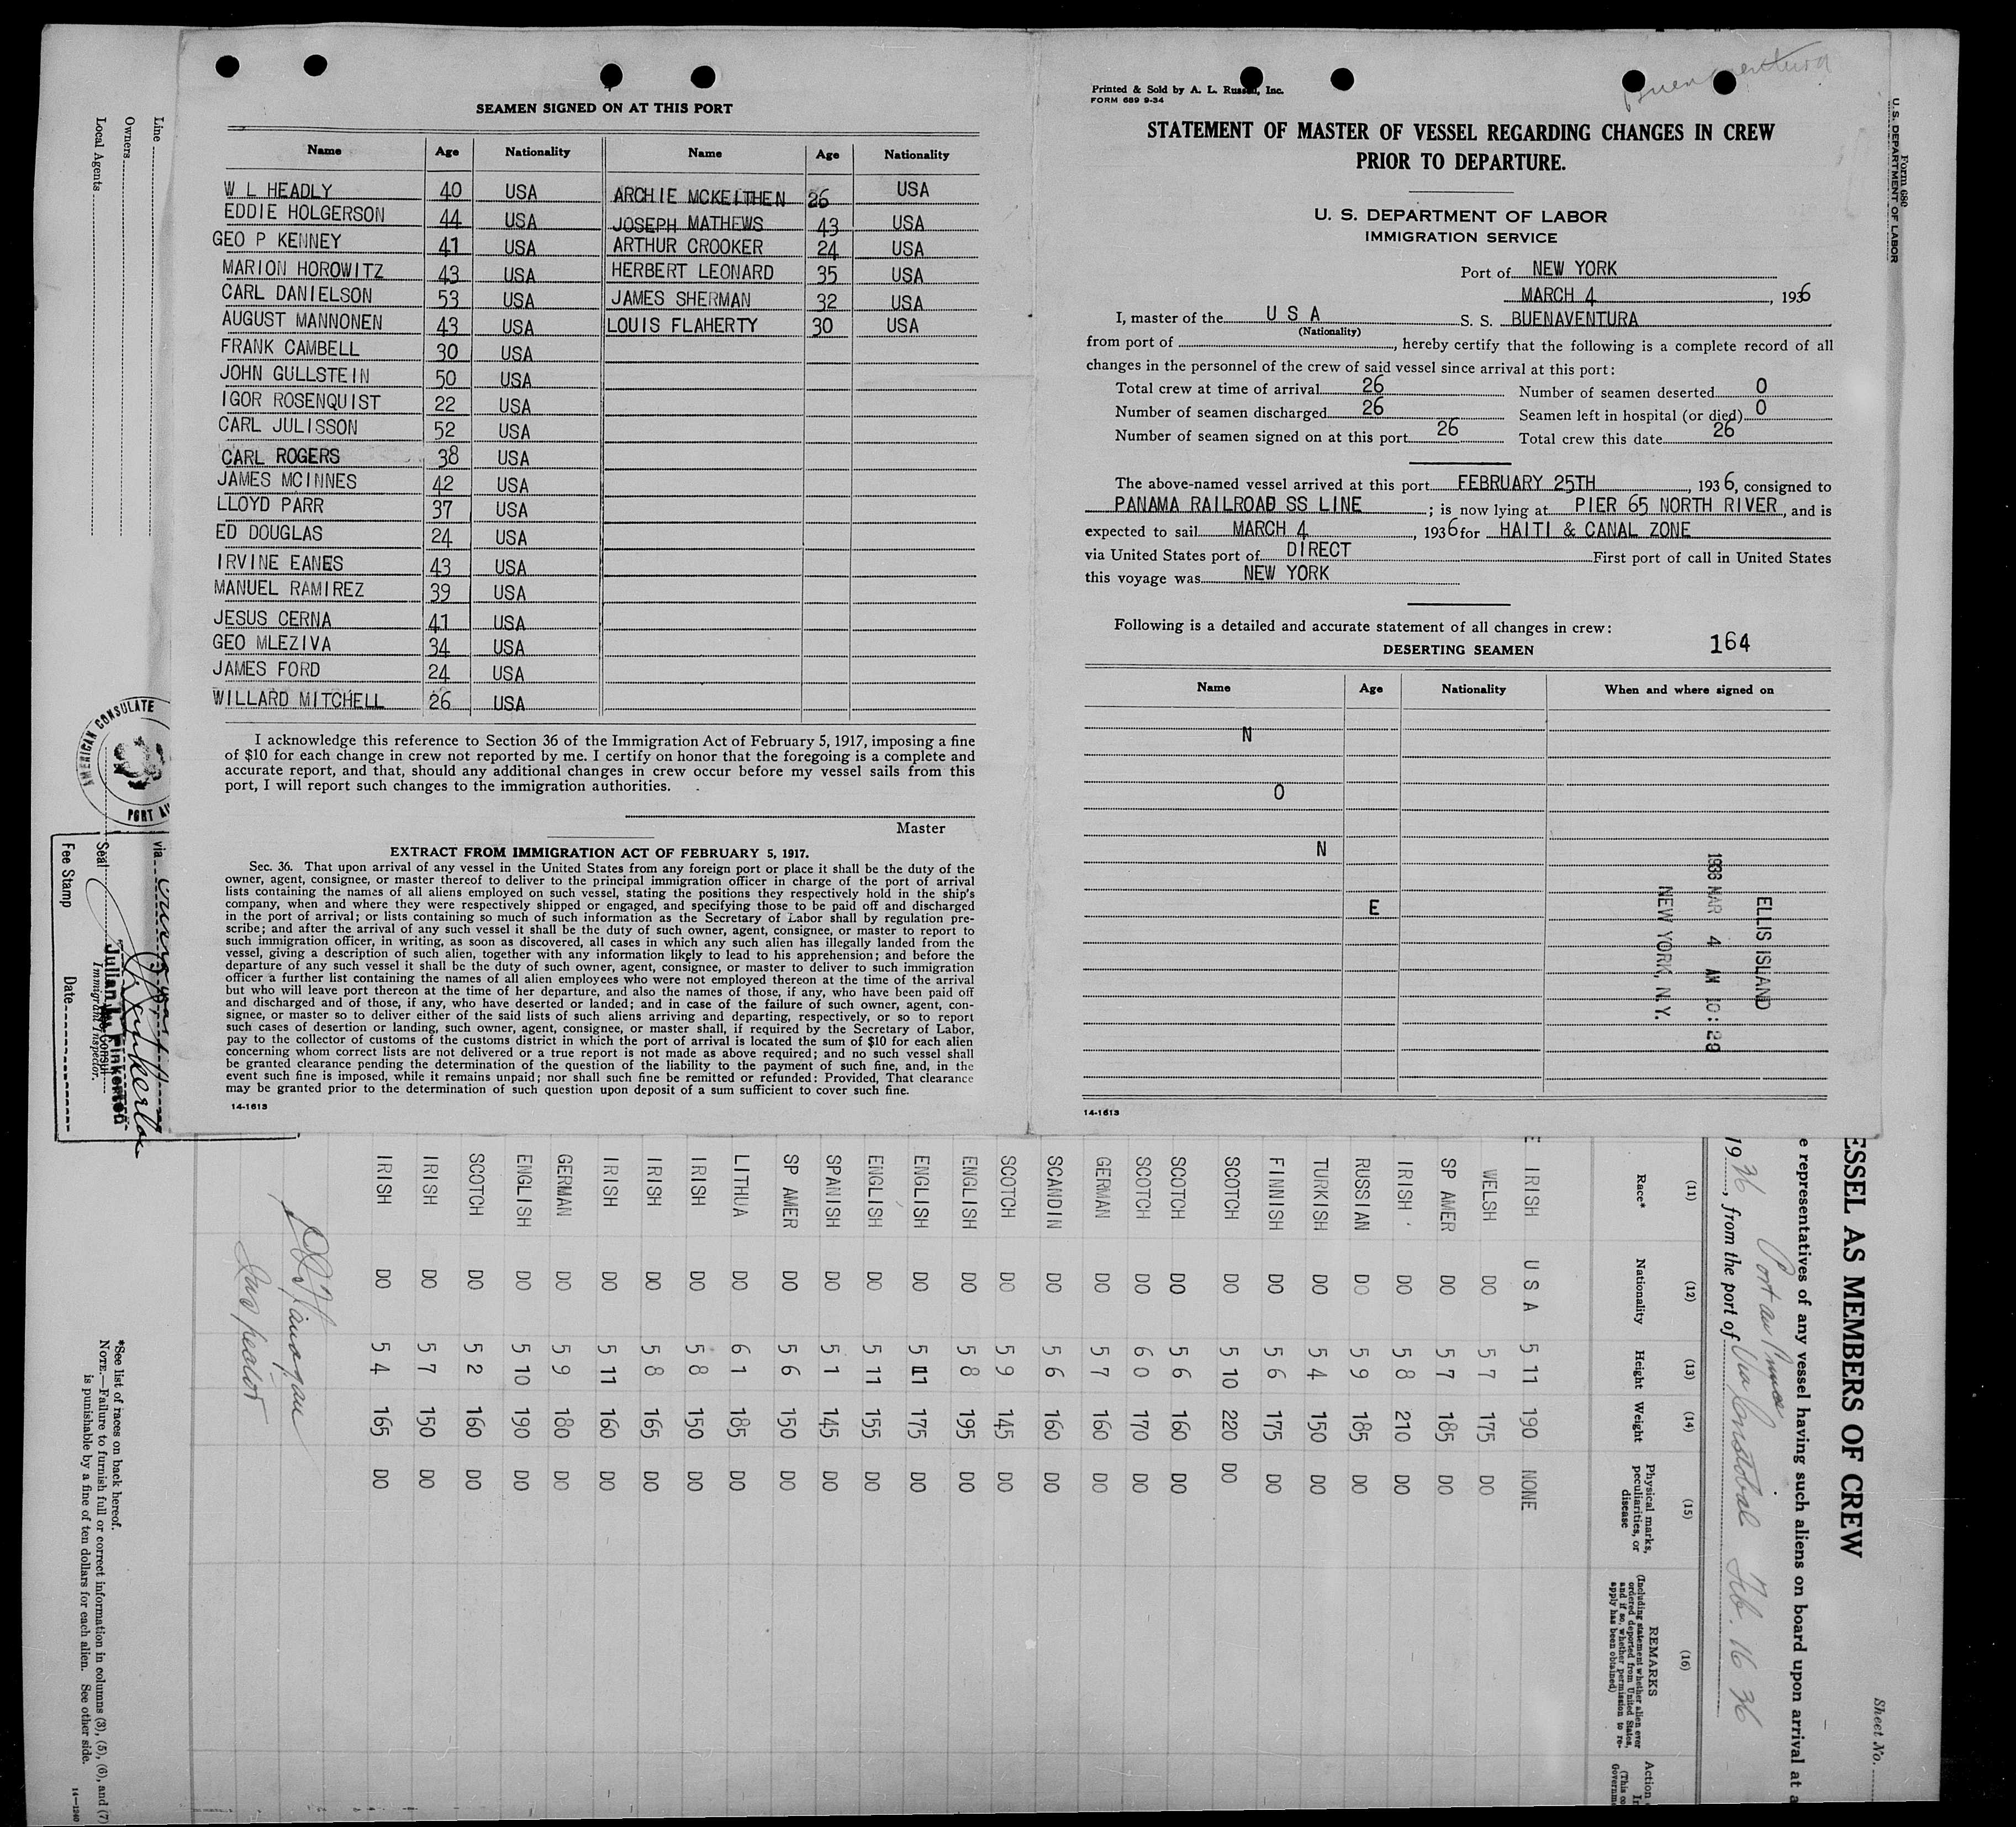 SEAMEN SIGNED ON AT THIS PORT
Name Age Nationality Name Age Nationality
W L HEADLY 40 USA ARCHIE MCKEITHEN 26 USA
EDDIE HOLGERSON 44 USA JOSEPH MATHEWS 43 USA
GEO P KENNEY 41 USA ARTHUR CROOKER 24 USA
MARION HOROWITZ 43 USA HERBERT LEONARD 35 USA
CARL DANIELSON 53 USA JAMES SHERMAN 32 USA
AUGUST MANNONEN 43 USA LOUIS FLAHERTY 30 USA
FRANK CAMBELL 30 USA
JOHN GULLSTEIN 50 USA
IGOR ROSENQUIST 22 USA
CARL JULISSON 52 USA
CARL ROGERS 38 USA
JAMES MCINNES 42 USA
LLOYD PARR 37 USA
ED DOUGLAS 24 USA
IRVINE EANES 43 USA
MANUEL RAMIREZ 39 USA
JESUS CERNA 41 USA
GEO MLEZIVA 34 USA
JAMES FORD 24 USA
WILLARD MITCHELL 26 USA
I acknowledge this reference to Section 36 of the Immigration Act of February 5, 1917, imposing a fine
of $10 for each change in crew not reported by me. I certify on honor that the foregoing is a complete and
accurate report, and that, should any additional changes in crew occur before my vessel sails from this
port, I will report such changes to the immigration authorities.
Master
EXTRACT FROM IMMIGRATION ACT OF FEBRUARY 5, 1917.
Sec. 36. That upon arrival of any vessel in the United States from any foreign port or place it shall be the duty of the
owner, agent, consignee, or master thereof to deliver to the principal immigration officer in charge of the port of arrival
lists containing the names of all aliens employed on such vessel, stating the positions they respectively hold in the ship's
company, when and where they were respectively shipped or engaged, and specifying those to be paid off and discharged
in the port of arrival; or lists containing so much of such information as the Secretary of Labor shall by regulation pre-
scribe; and after the arrival of any such vessel it shall be the duty of such owner, agent, consignee, or master to report to
such immigration officer, in writing, as soon as discovered, all cases in which any such alien has illegally landed from the
vessel, giving a description of such alien, together with any information likely to lead to his apprehension; and before the
departure of any such vessel it shall be the duty of such owner, agent, consignee, or master to deliver to such immigration
officer a further list containing the names of all alien employees who were not employed thereon at the time of the arrival
but who will leave port thereon at the time of her departure, and also the names of those, if any, who have been paid off
and discharged and of those, if any, who have deserted or landed; and in case of the failure of such owner, agent, con-
signee, or master so to deliver either of the said lists of such aliens arriving and departing, respectively, or so to report
such cases of desertion or landing, such owner, agent, consignee, or master shall, if required by the Secretary of Labor,
pay to the collector of customs of the customs district in which the port of arrival is located the sum of $10 for each alien
concerning whom correct lists are not delivered or a true report is not made as above required; and no such vessel shall
be granted clearance pending the determination of the question of the liability to the payment of such fine, and, in the
event such fine is imposed, while it remains unpaid; nor shall such fine be remitted or refunded: Provided, That clearance
may be granted prior to the determination of such question upon deposit of a sum sufficient to cover such fine.
14-1613
Buenaventura
Printed & Sold by A. L. Russell, Inc.
FORM 689 9-34
STATEMENT OF MASTER OF VESSEL REGARDING CHANGES IN CREW
PRIOR TO DEPARTURE.
U. S. DEPARTMENT OF LABOR
IMMIGRATION SERVICE
Port of NEW YORK
MARCH 4, 1936
I, master of the U S A S. S. BUENAVENTURA
(Nationality)
from port of , hereby certify that the following is a complete record of all
changes in the personnel of the crew of said vessel since arrival at this port:
Total crew at time of arrival 26 Number of seamen deserted 0
Number of seamen discharged 26 Seamen left in hospital (or died) 0
Number of seamen signed on at this port 26 Total crew this date 26
The above-named vessel arrived at this port FEBRUARY 25TH, 1936, consigned to
PANAMA RAILROAD SS LINE; is now lying at PIER 65 NORTH RIVER, and is
expected to sail MARCH 4, 1936 for HAITI & CANAL ZONE
via United States port of DIRECT First port of call in United States
this voyage was NEW YORK
Following is a detailed and accurate statement of all changes in crew:
164
DESERTING SEAMEN
Name Age Nationality When and where signed on
N
O
N
E
ELLIS ISLAND
1936 MAR 4 AM 10:28
NEW YORK, N. Y.
14-1613
Form 680
U. S. DEPARTMENT OF LABOR
Line
Owners
Local Agents
AMERICAN CONSULATE
PORT AU
via
Seal
Julian L. Pinkerton
Immigrant Inspector.
Fee Stamp Date
Sheet No.
ESSEL AS MEMBERS OF CREW
e representatives of any vessel having such aliens on board upon arrival at a
Port au Prince
1936, from the port of Via Cristobal Feb. 16 36
(11) (12) (13) (14) (15) (16)
Race* Nationality Height Weight Physical marks, peculiarities, or disease
REMARKS
(Including statement whether alien ever
ordered deported from United States,
and if so, whether permission to re-
apply has been obtained)
Action
E IRISH U S A 5 11 190 NONE
WELSH DO 5 7 175 DO
SP AMER DO 5 7 185 DO
IRISH DO 5 8 210 DO
RUSSIAN DO 5 9 185 DO
TURKISH DO 5 4 150 DO
FINNISH DO 5 6 175 DO
SCOTCH DO 5 10 220 DO
SCOTCH DO 5 6 160 DO
SCOTCH DO 6 0 170 DO
GERMAN DO 5 7 160 DO
SCANDIN DO 5 6 160 DO
SCOTCH DO 5 9 145 DO
ENGLISH DO 5 8 195 DO
ENGLISH DO 5 11 175 DO
ENGLISH DO 5 11 155 DO
SPANISH DO 5 1 145 DO
SP AMER DO 5 6 150 DO
LITHUA DO 6 1 185 DO
IRISH DO 5 8 150 DO
IRISH DO 5 8 165 DO
IRISH DO 5 11 160 DO
GERMAN DO 5 9 180 DO
ENGLISH DO 5 10 190 DO
SCOTCH DO 5 2 160 DO
IRISH DO 5 7 150 DO
IRISH DO 5 4 165 DO
Inspector
*See list of races on back hereof.
NOTE.—Failure to furnish full or correct information in columns (3), (5), (6), and (7)
is punishable by a fine of ten dollars for each alien. See other side.
14-1240